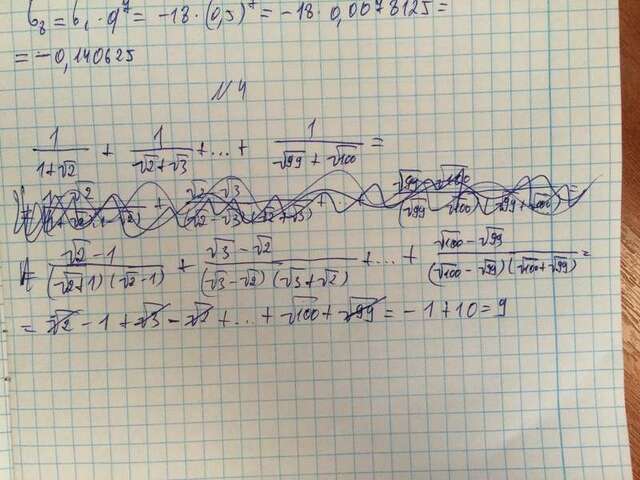 b₈ = b₁ · q⁷ = -18 · (0,5)⁷ = -18 · 0,0078125 =
= -0,140625
N4
1/(1+√2) + 1/(√2+√3) + ... + 1/(√99 + √100) =
= (√2 - 1)/((√2+1)(√2-1)) + (√3 - √2)/((√3-√2)(√3+√2)) + ... + (√100 - √99)/((√100 - √99)(√100+√99)) =
= √2 - 1 + √3 - √2 + ... + √100 + √99 = -1 + 10 = 9